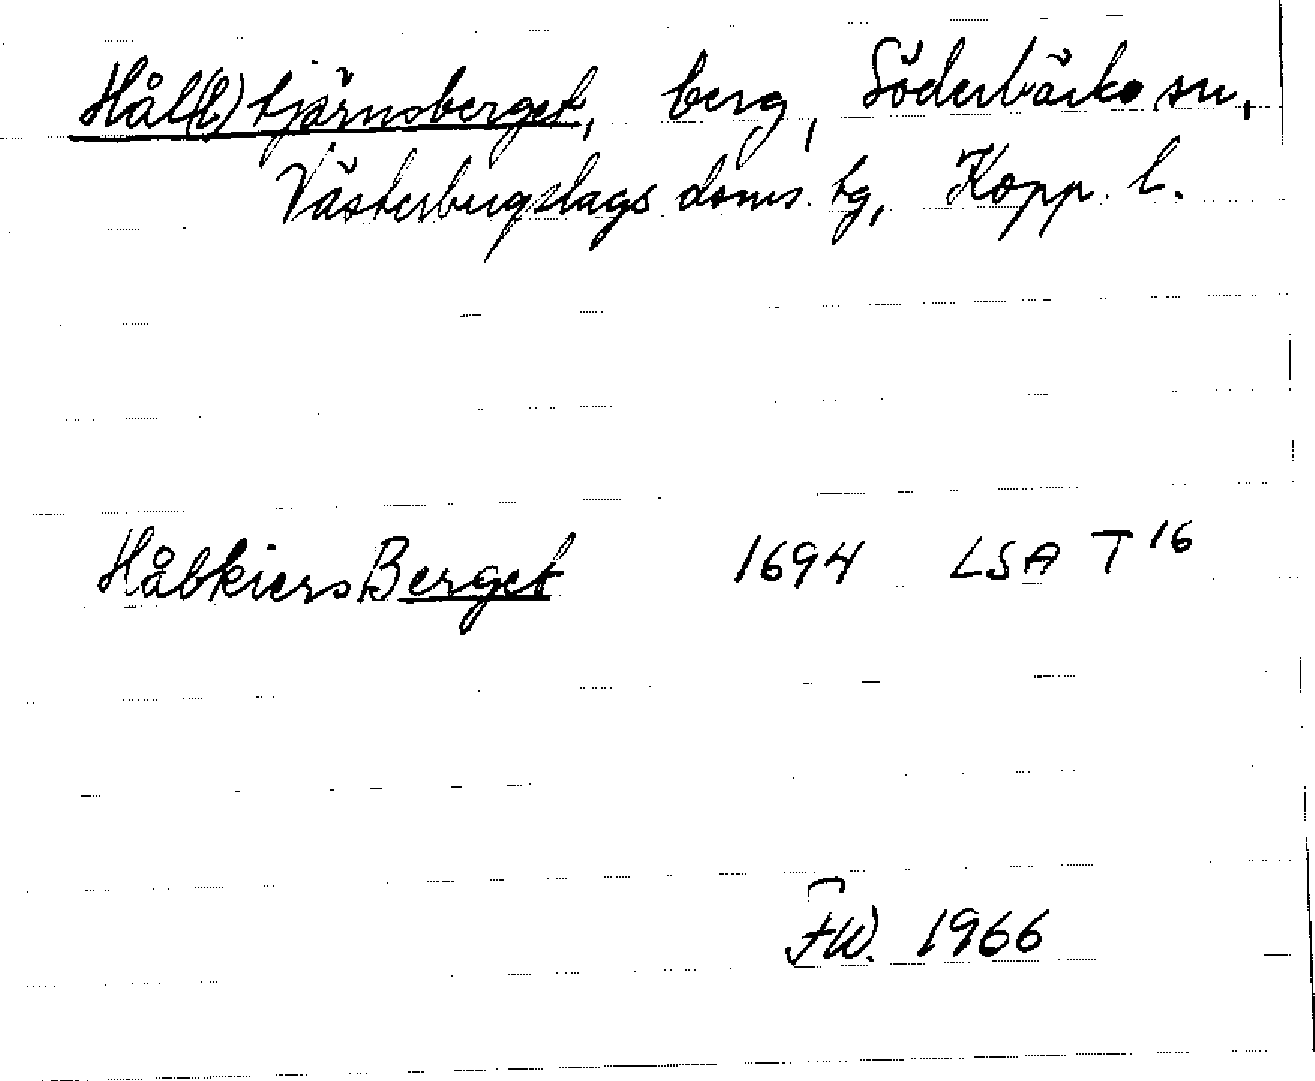 Hål(l)tjärnsberget, berg, Söderbärke sn,
Västerbergslags doms. tg, Kopp. l.
HåltkiersBerget 1694 LSA T 16
F.W. 1966